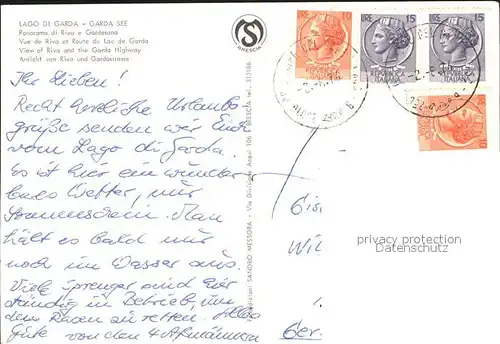 LAGO DI GARDA - GARDA SEE
Panorama di Riva e Gardesana
Vue de Riva et Route du Lac de Garda
View of Riva and the Garda Highway
Anlicht von Riva und Gardastrasse
S
BRESCIA
LIRE 15
LIRE 15
ITALIANE
10
Ihr Lieben!
Recht herzliche Urlaubs-
grüße senden wir Euch
vom Lago di Garda.
Es ist hier ein wunder
bares Wetter, nur
Sonnenschein. Man
hält es bald nur
noch im Wasser aus.
Viele Sprenger sind hier
ständig in Betrieb, um
den Rasen zu retten. Alles
Gute von den 4
Edizioni SANDRO MESSORA - Via Divisione Acqui 106 - BRESCIA tel. 312186
privacy protection
Datenschutz